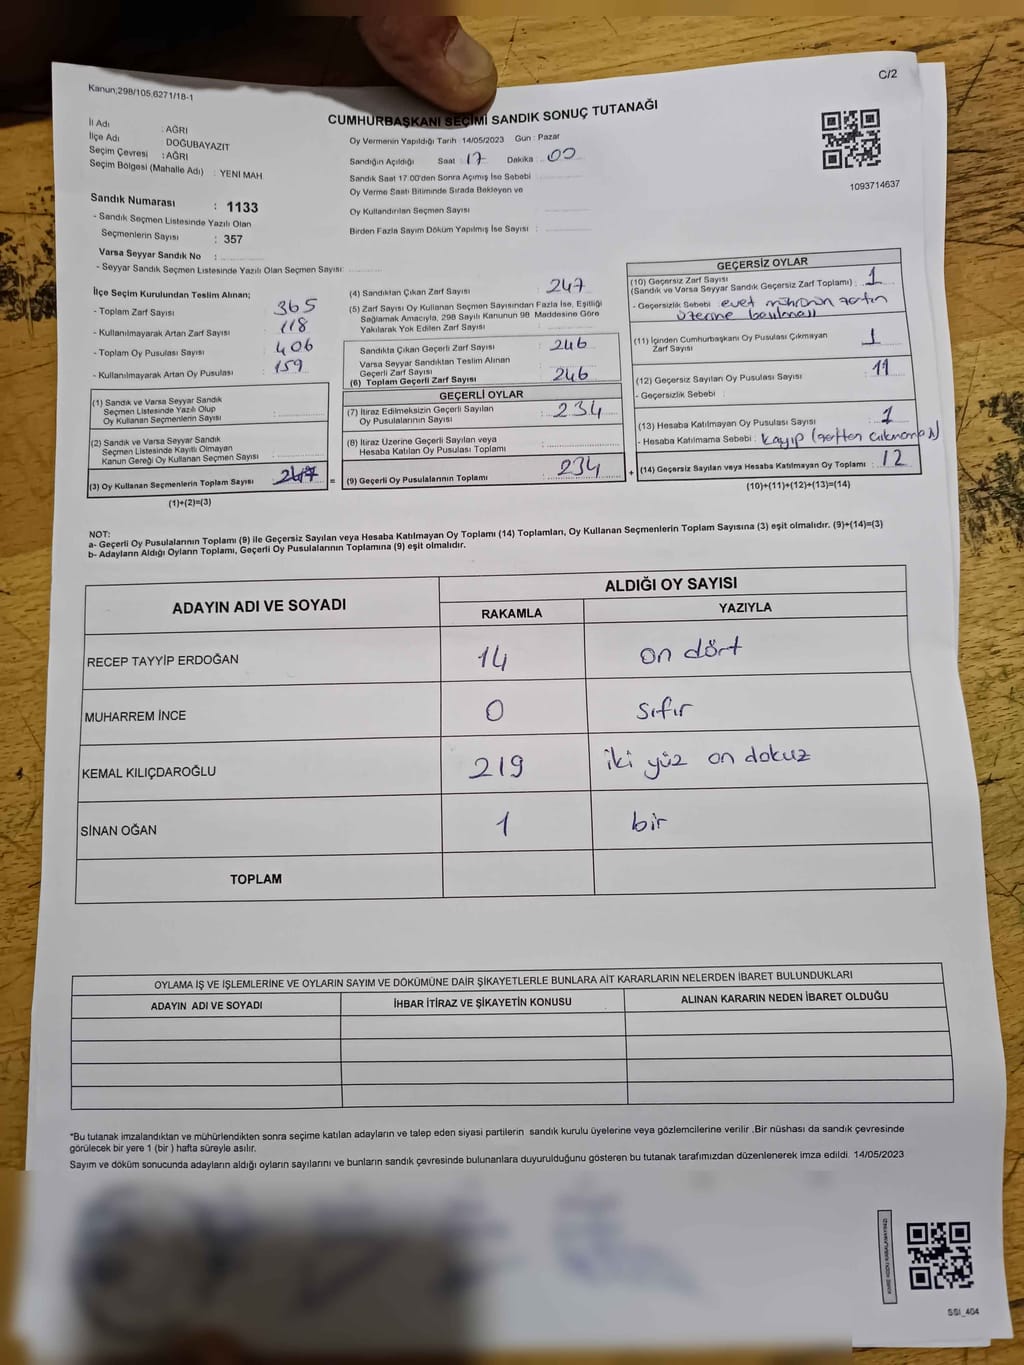 Kanun;298/105,6271/18-1
C/2
CUMHURBAŞKANI SEÇİMİ SANDIK SONUÇ TUTANAĞI
İl Adı : AĞRI
İlçe Adı DOĞUBAYAZIT
Seçim Çevresi : AĞRI
Seçim Bölgesi (Mahalle Adı) : YENİ MAH
Oy Vermenin Yapıldığı Tarih 14/05/2023 Gün : Pazar
Sandığın Açıldığı Saat : 17 Dakika : 00
Sandık Saat 17.00'den Sonra Açımış İse Sebebi
Oy Verme Saati Bitiminde Sırada Bekleyen ve
Oy Kullandırılan Seçmen Sayısı
Birden Fazla Sayım Döküm Yapılmış İse Sayısı :
1093714637
Sandık Numarası : 1133
- Sandık Seçmen Listesinde Yazılı Olan
Seçmenlerin Sayısı : 357
Varsa Seyyar Sandık No :
- Seyyar Sandık Seçmen Listesinde Yazılı Olan Seçmen Sayısı:
İlçe Seçim Kurulundan Teslim Alınan;
- Toplam Zarf Sayısı : 365
- Kullanılmayarak Artan Zarf Sayısı : 118
- Toplam Oy Pusulası Sayısı : 406
- Kullanılmayarak Artan Oy Pusulası : 159
(1) Sandık ve Varsa Seyyar Sandık
Seçmen Listesinde Yazılı Olup
Oy Kullanan Seçmenlerin Sayısı :
(2) Sandık ve Varsa Seyyar Sandık
Seçmen Listesinde Kayıtlı Olmayan
Kanun Gereği Oy Kullanan Seçmen Sayısı :
(3) Oy Kullanan Seçmenlerin Toplam Sayısı : 247 =
(1)+(2)=(3)
(4) Sandıktan Çıkan Zarf Sayısı : 247
(5) Zarf Sayısı Oy Kullanan Seçmen Sayısından Fazla İse, Eşitliği
Sağlamak Amacıyla, 298 Sayılı Kanunun 98 Maddesine Göre
Yakılarak Yok Edilen Zarf Sayısı :
Sandıkta Çıkan Geçerli Zarf Sayısı : 246
Varsa Seyyar Sandıktan Teslim Alınan
Geçerli Zarf Sayısı :
(6) Toplam Geçerli Zarf Sayısı : 246
GEÇERLİ OYLAR
(7) İtiraz Edilmeksizin Geçerli Sayılan
Oy Pusulalarının Sayısı : 234
(8) İtiraz Üzerine Geçerli Sayılan veya
Hesaba Katılan Oy Pusulası Toplamı :
(9) Geçerli Oy Pusulalarının Toplamı : 234 +
GEÇERSİZ OYLAR
(10) Geçersiz Zarf Sayısı
(Sandık ve Varsa Seyyar Sandık Geçersiz Zarf Toplamı) : 1
- Geçersizlik Sebebi evet mührünün zarfın
üzerine basılması
(11) İçinden Cumhurbaşkanı Oy Pusulası Çıkmayan
Zarf Sayısı : 1
(12) Geçersiz Sayılan Oy Pusulası Sayısı : 11
- Geçersizlik Sebebi :
(13) Hesaba Katılmayan Oy Pusulası Sayısı : 1
- Hesaba Katılmama Sebebi : kayıp (zarftan çıkmaması)
(14) Geçersiz Sayılan veya Hesaba Katılmayan Oy Toplamı : 12
(10)+(11)+(12)+(13)=(14)
NOT:
a- Geçerli Oy Pusulalarının Toplamı (9) ile Geçersiz Sayılan veya Hesaba Katılmayan Oy Toplamı (14) Toplamları, Oy Kullanan Seçmenlerin Toplam Sayısına (3) eşit olmalıdır. (9)+(14)=(3)
b- Adayların Aldığı Oyların Toplamı, Geçerli Oy Pusulalarının Toplamına (9) eşit olmalıdır.
ADAYIN ADI VE SOYADI
ALDIĞI OY SAYISI
RAKAMLA YAZIYLA
RECEP TAYYİP ERDOĞAN 14 on dört
MUHARREM İNCE 0 sıfır
KEMAL KILIÇDAROĞLU 219 iki yüz on dokuz
SİNAN OĞAN 1 bir
TOPLAM
OYLAMA İŞ VE İŞLEMLERİNE VE OYLARIN SAYIM VE DÖKÜMÜNE DAİR ŞİKAYETLERLE BUNLARA AİT KARARLARIN NELERDEN İBARET BULUNDUKLARI
ADAYIN ADI VE SOYADI İHBAR İTİRAZ VE ŞİKAYETİN KONUSU ALINAN KARARIN NEDEN İBARET OLDUĞU
*Bu tutanak imzalandıktan ve mühürlendikten sonra seçime katılan adayların ve talep eden siyasi partilerin sandık kurulu üyelerine veya gözlemcilerine verilir .Bir nüshası da sandık çevresinde
görülecek bir yere 1 (bir ) hafta süreyle asılır.
Sayım ve döküm sonucunda adayların aldığı oyların sayılarını ve bunların sandık çevresinde bulunanlara duyurulduğunu gösteren bu tutanak tarafımızdan düzenlenerek imza edildi. 14/05/2023
SSI_404